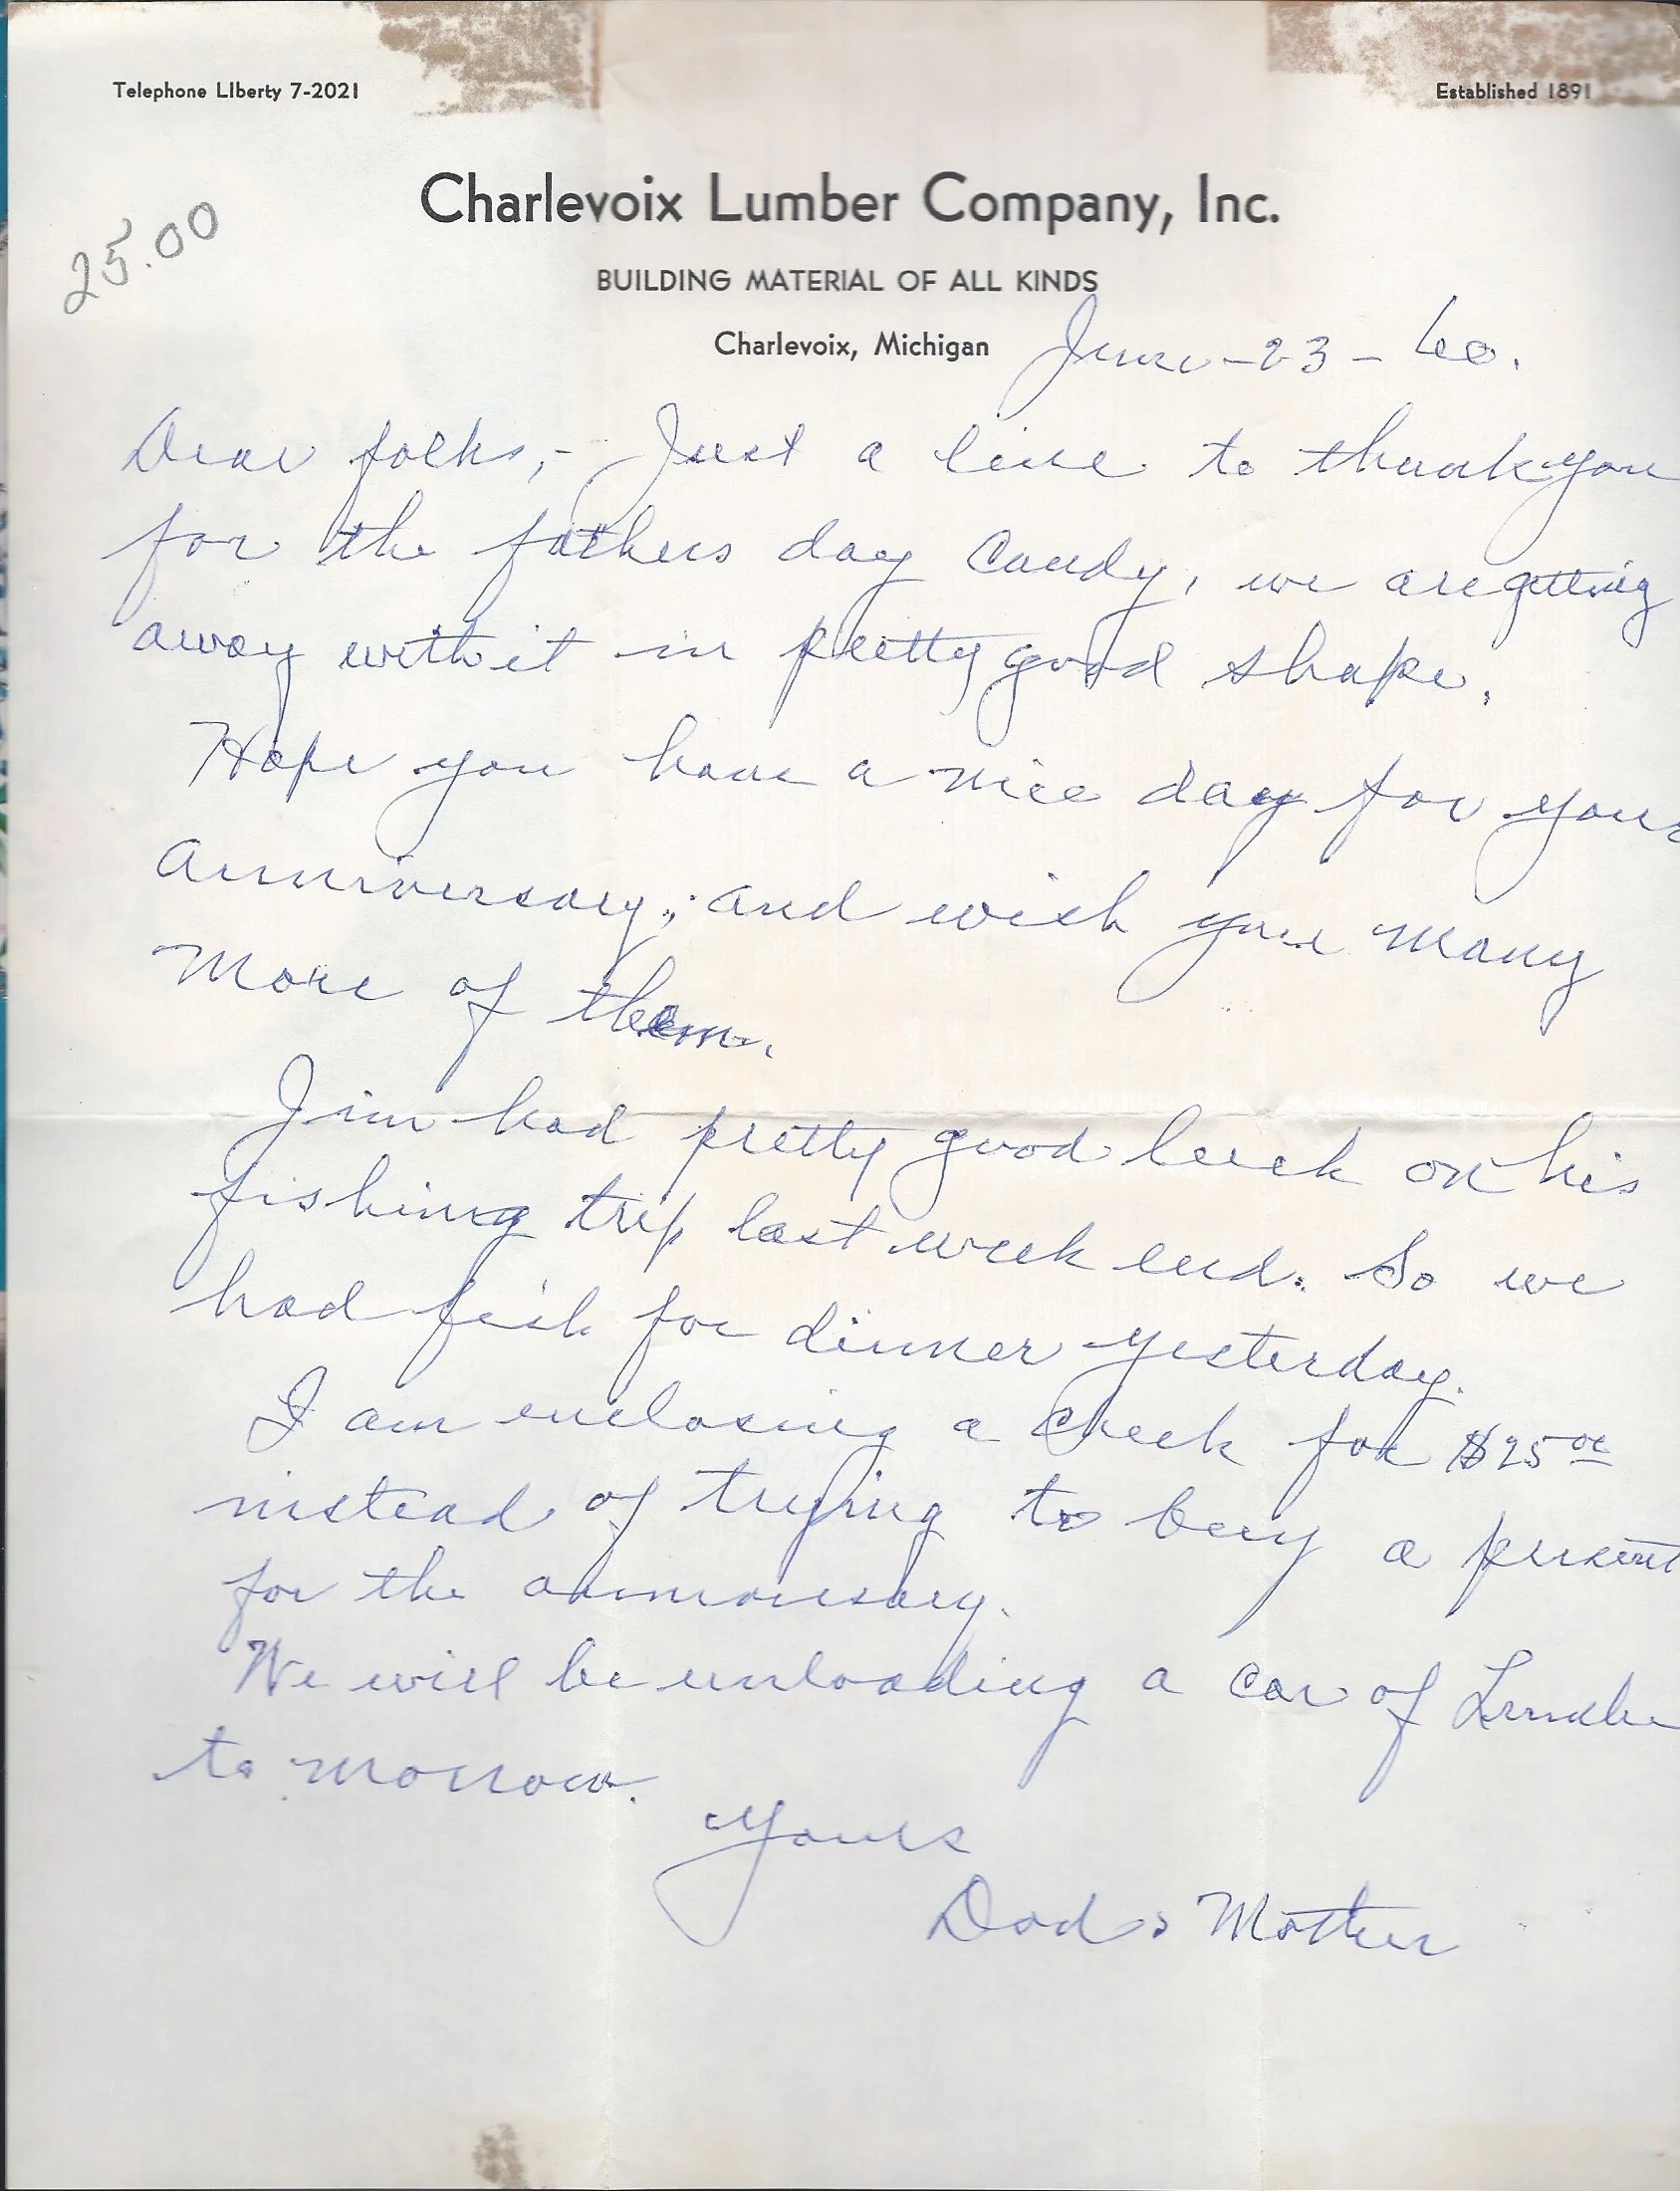 Telephone LIberty 7-2021 Established 1891
Charlevoix Lumber Company, Inc.
25.00
BUILDING MATERIAL OF ALL KINDS
Charlevoix, Michigan June-23-60.
Dear folks,- Just a line to thank you
for the fathers day Candy, we are getting
away with it in pretty good shape.
Hope you have a nice day for your
anniversary, and wish you many
more of them.
Jim had pretty good luck on his
fishing trip last week end. So we
had fish for dinner yesterday.
I am enclosing a check for $25 00
instead of trying to buy a present
for the anniversary.
We will be unloading a car of Lumbe
to morrow.
Yours
Dad & Mother